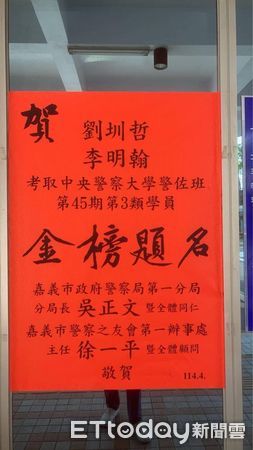 賀
劉圳哲
李明翰
考取中央警察大學警佐班
第45期第3類學員
金榜題名
嘉義市政府警察局第一分局
分局長 吳正文 暨全體同仁
嘉義市警察之友會第一辦事處
主任 徐一平 暨全體顧問
敬賀 114.4.
ETtoday新聞雲